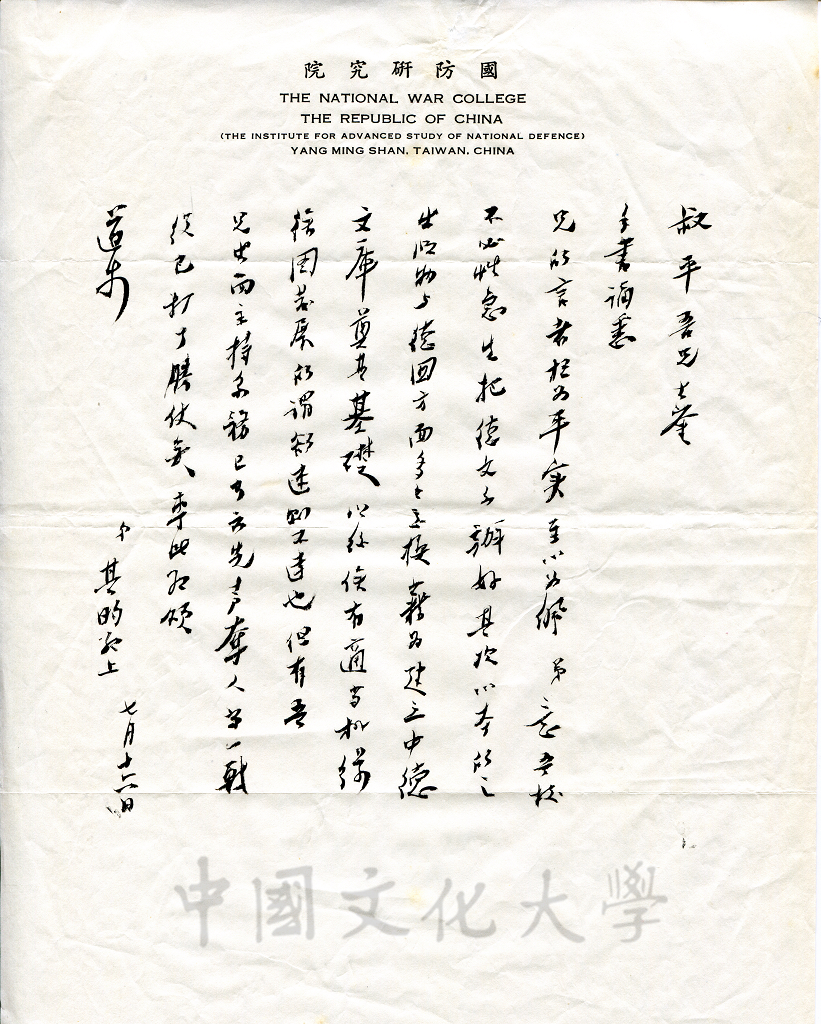 國防研究院
THE NATIONAL WAR COLLEGE
THE REPUBLIC OF CHINA
(THE INSTITUTE FOR ADVANCED STUDY OF NATIONAL DEFENCE)
YANG MING SHAN, TAIWAN, CHINA
叔平吾兄大鉴
手書誦悉
兄的言者極为平實至以为佩弟意吾校
不必性急先把德文系辦好其次以本所之
出版物与德國方面多多交換藉为建立中德
文庫奠其基礎以後俟有適当機緣
徐圖發展所謂欲速則不達也但有吾
兄出而主持系務已可云先声奪人第一戰
役已打了勝仗矣专此敬頌
道安
弟其昀敬上
七月十六日
中國文化大學